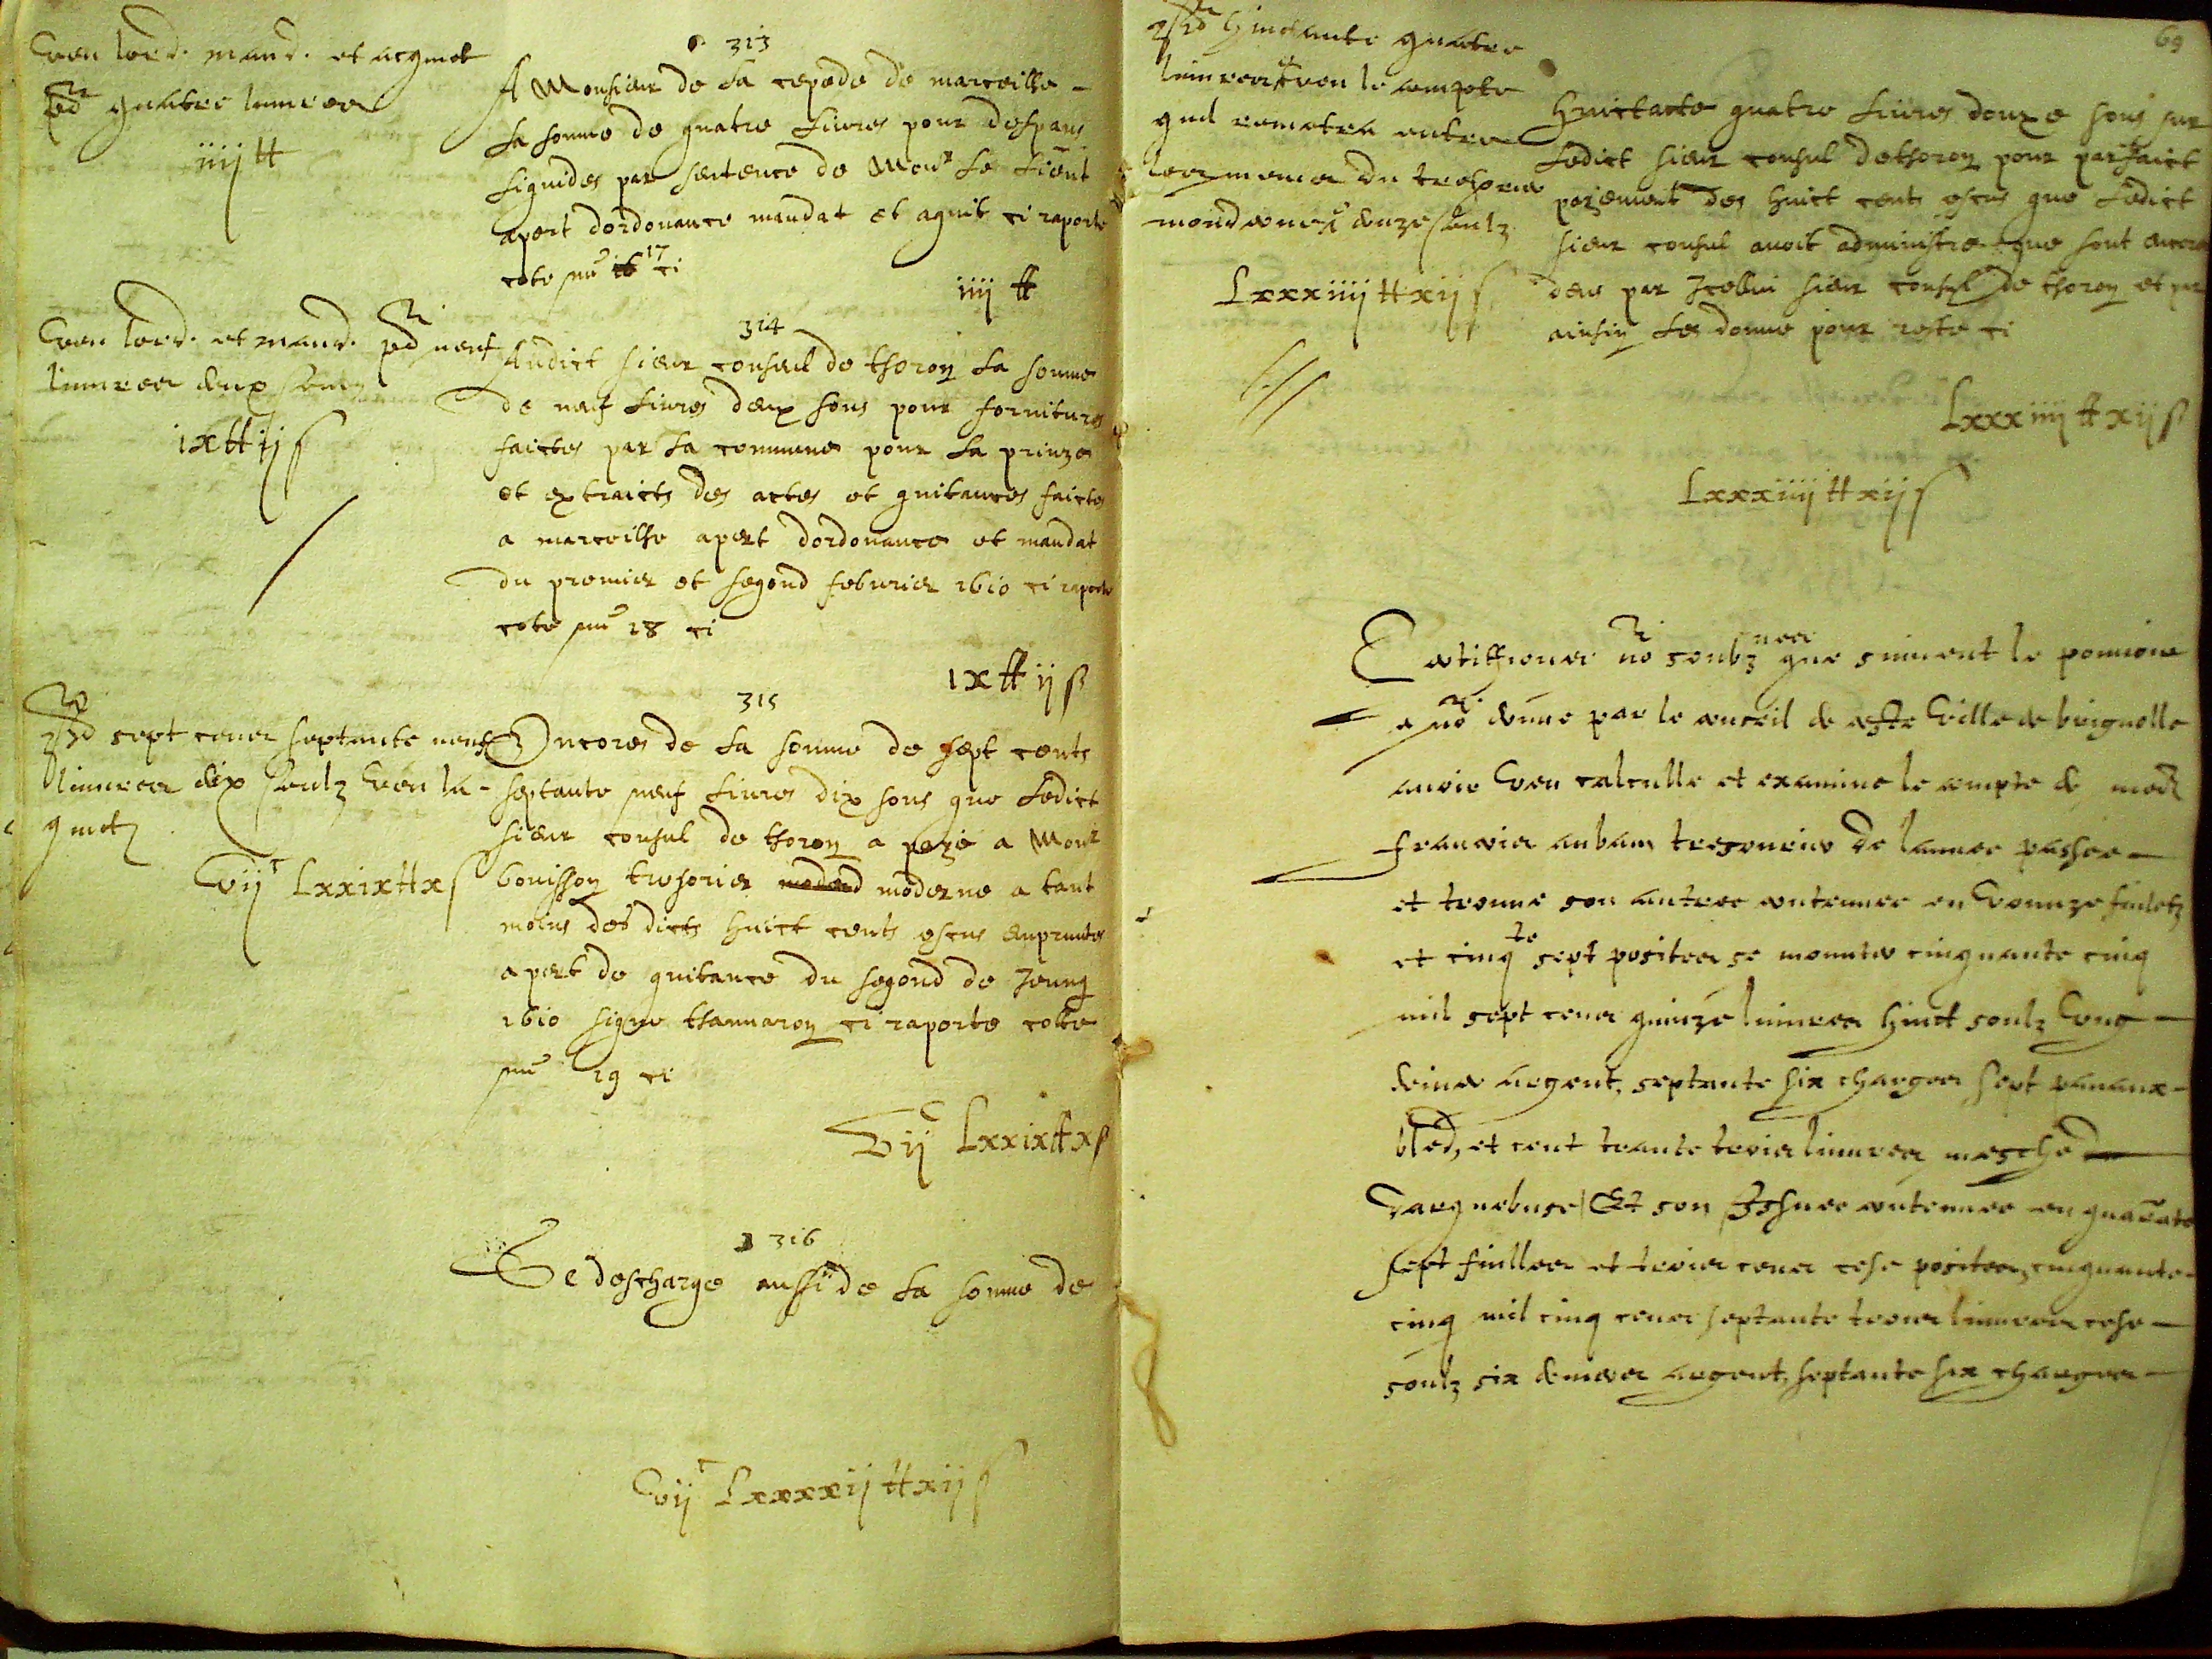 Veu lord. mand. et acquit
pd quatre livres
iiij tt
313
A Monsieur de La cepede de marceilhe
La somme de quatre Livres pour despans
Liquides par sentence de Monr Le Lieut
apert dordonance mandat et aquit ci raporte
cote nu 17 ci
iiij tt
Veu lord. et mand. pd neuf
livres deux soulz
ix tt ij s
314
Audict sieur consul de thoron La somme
de neuf Livres deux sous pour fornitures
faictes par La commune pour La prinze
et extraicts des actes et quitances faictes
a marceilhe apert dordonance et mandat
du premier et segond febvrier 1610 ci raporte
cote nu 18 ci
ix tt ij s
pd sept cens septante neuf
livres dix soulz veu la
quict
vij c Lxxix tt x s
315
Encores de La somme de sept cents
septante neuf Livres dix sous que Ledict
sieur consul de thoron a paye a Monr
bouisson tresorier moderne a tant
moins des dicts huict cents escus enpruntes
apert de quitance du segond de Jeung
1610 signe thannaron ci raporte cotte
nu 19 ci
vij c Lxxix tt x s
316
Se descharge aussi de La somme de
vij c Lxxxxij tt xij s
69
pd huictante quatre
livres veu le compte
quil remetra entre
les mains du tresorier
moderne douze soulz
Lxxxiiij tt xij s
Huictante quatre Livres douze sous sur
Ledict sieur consul de thoron pour parfaict
payement des huict cents escus que Ledict
sieur consul avoit administre que sont
par Icelluy sieur consul de thoron et par
ainsin Les donne pour reste ci
Lxxxiiij tt xij s
Lxxxiiij tt xij s
Certiffions no soubz nes que suivent le pouvoir
a no donne par le conseil de ceste Ville de brignolle
avoir veu calculle et examine le compte de
francois auban tresorier de lannee passee
et trouve son entree contenue en vounze fulhetz
et cinq te sept postes se monter cinquante cinq
mil sept cens quinze livres huict soulz ung
denier argent, septante six charges sept panaux
bled, et cent trante trois livres mesche
darquebuse / Et son Isshue contenue en quarate
sept fuilles et trois cens setze postes, cinquante
cinq mil cinq cens septante trois livres setze
soulz six deniers argent, septante six charges